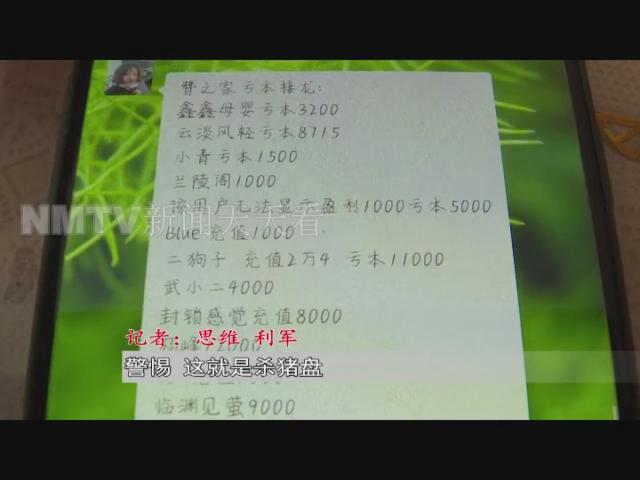 赞之家亏本接龙:
鑫鑫母婴亏本3200
云淡风轻亏本8715
小青亏本1500
兰陵阁1000
该用户无法显示盈利1000亏本5000
NMTV新闻天天看
Blue充值1000
二狗子 充值2万4 亏本11000
武小二4000
封锁感觉充值8000
记者：思维 利军
警惕 这就是杀猪盘
临渊见萤9000